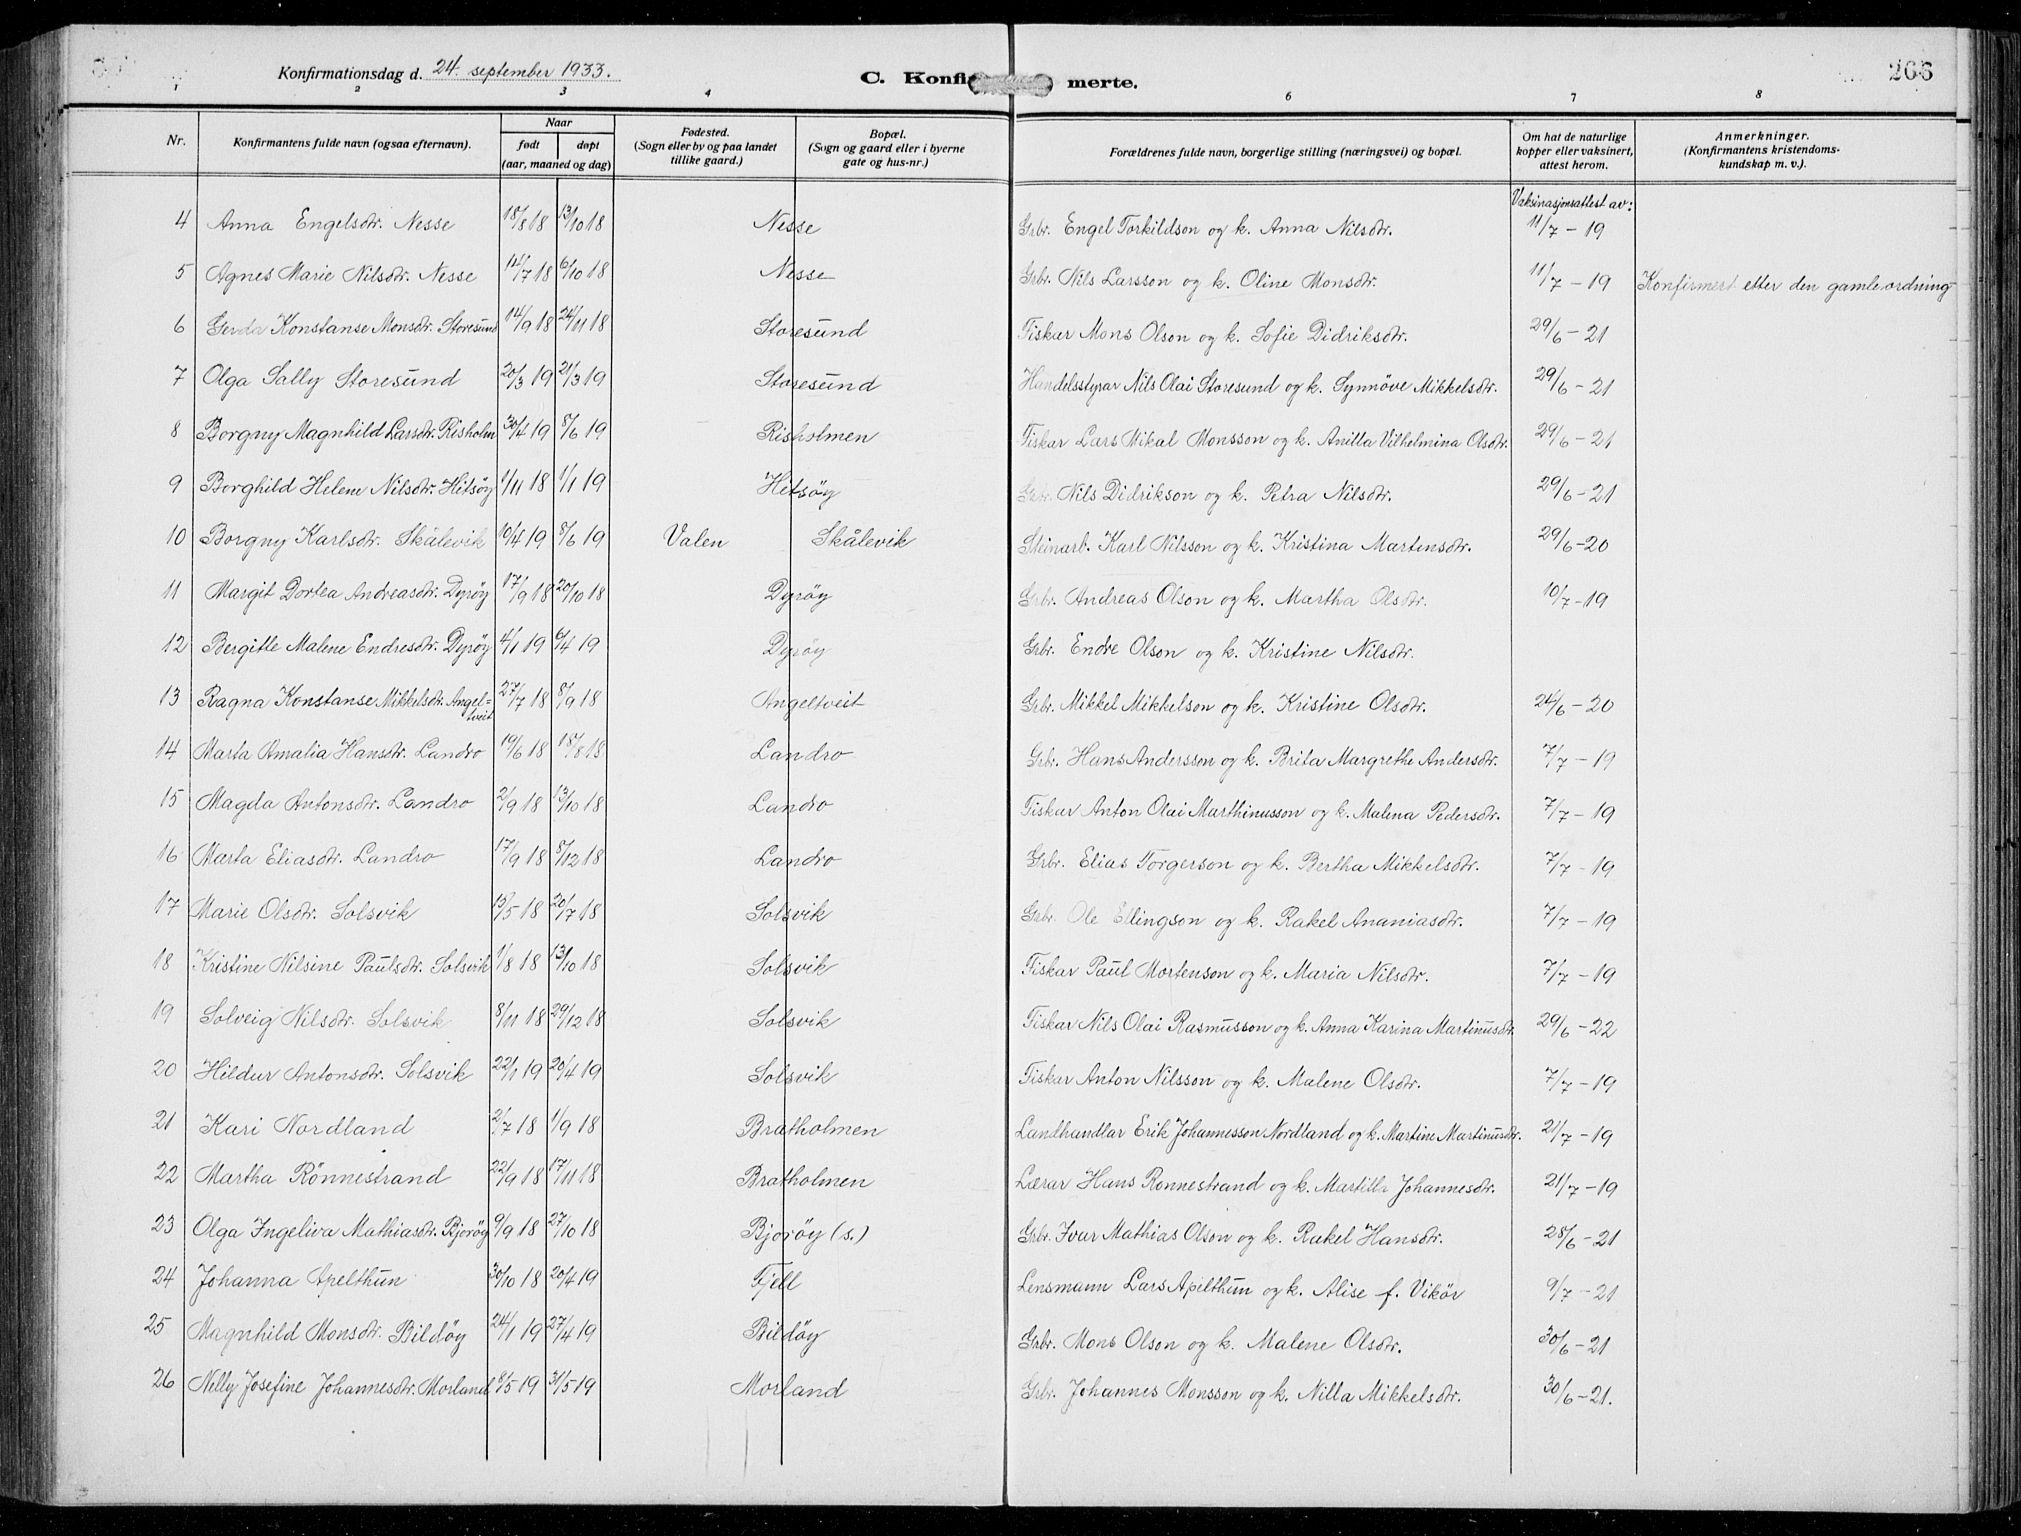 Konfirmationsdag d. 24. september 1933.
C. Konfirmerte.
266
1 2 3 4 6 7 8
Nr.
Konfirmantens fulde navn (ogsaa efternavn).
Naar
født døpt
(aar, maaned og dag)
Fødested.
(Sogn eller by og paa landet
tillike gaard.)
Bopæl.
(Sogn og gaard eller i byerne
gate og hus-nr.)
Forældrenes fulde navn, borgerlige stilling (næringsvei) og bopæl.
Om hat de naturlige
kopper eller vaksinert,
attest herom.
Anmerkninger.
(Konfirmantens kristendoms-
kundskap m. v.).
Vaksinasjonsattest av:
4 Anna Engelsdtr. Nesse 18/8 18 13/10 18 Nesse Grbr. Engel Torkildson og k. Anna Nilsdtr. 11/7 - 19
5 Agnes Marie Nilsdtr. Nesse 14/7 18 6/10 18 Nesse Grbr. Nils Larsson og k. Oline Monsdtr. 11/7 - 19 Konfirmert etter den gamle ordning
6 Gerda Konstanse Monsdtr. Storesund 14/9 18 24/11 18 Storesund Fiskar Mons Olson og k. Sofie Didriksdtr. 29/6 - 21
7 Olga Sally Storesund 20/3 19 21/3 19 Storesund Handelsstyrar Nils Olai Storesund og k. Synnöve Mikkelsdtr. 29/6 - 21
8 Borgny Magnhild Larsdtr. Risholm 30/4 19 8/6 19 Risholmen Fiskar Lars Mikal Monsson og k. Anitta Vilhelmina Olsdtr. 29/6 - 21
9 Borghild Helene Nilsdtr. Hitsöy 1/11 18 1/1 19 Hitsöy Grbr. Nils Didrikson og k. Petra Nilsdtr. 29/6 - 21
10 Borgny Karlsdtr. Skålevik 10/4 19 8/6 19 Valen Skålevik Steinarb. Karl Nilsson og k. Kristina Martinsdtr. 29/6 - 20
11 Margit Dortea Andreasdtr. Dyröy 17/9 18 20/10 18 Dyröy Grbr. Andreas Olson og k. Martha Olsdtr. 10/7 - 19
12 Bergitte Malene Endresdtr. Dyröy 4/1 19 6/4 19 Dyröy Grbr. Endre Olson og k. Kristine Nilsdtr.
13 Ragna Konstanse Mikkelsdtr. Angel=
tveit 27/7 18 8/9 18 Angeltveit Grbr. Mikkel Mikkelson og k. Kristine Olsdtr. 24/6 - 20
14 Marta Amalia Hansdtr. Landro 19/6 18 18/8 18 Landro Grbr. Hans Andersson og k. Brita Margrethe Andersdtr. 7/7 - 19
15 Magda Antonsdtr. Landro 2/9 18 13/10 18 Landro Fiskar Anton Olai Marthinusson og k. Malena Pedersdtr. 7/7 - 19
16 Marta Eliasdtr. Landro 17/9 18 8/12 18 Landro Grbr. Elias Torgerson og k. Bertha Mikkelsdtr. 7/7 - 19
17 Marie Olsdtr. Solsvik 13/5 18 20/7 18 Solsvik Grbr. Ole Ellingson og k. Rakel Ananiasdtr. 7/7 - 19
18 Kristine Nilsine Paulsdtr. Solsvik 1/8 18 13/10 18 Solsvik Fiskar Paul Mortenson og k. Maria Nilsdtr. 7/7 - 19
19 Solveig Nilsdtr. Solsvik 8/11 18 29/12 18 Solsvik Fiskar Nils Olai Rasmusson og k. Anna Karina Martinusdtr. 29/6 - 22
20 Hildur Antonsdtr. Solsvik 22/1 19 20/4 19 Solsvik Fiskar Anton Nilsson og k. Malene Olsdtr. 7/7 - 19
21 Kari Nordland 2/7 18 1/9 18 Bratholmen Landhandlar Erik Johannesson Nordland og k. Martine Martinusdtr. 21/7 - 19
22 Martha Rönnestrand 22/9 18 17/11 18 Bratholmen Lærar Hans Rönnestrand og k. Martille Johannesdtr. 21/7 - 19
23 Olga Ingeliva Mathiasdtr. Bjoröy 9/9 18 27/10 18 Bjoröy (s.) Grbr. Ivar Mathias Olson og k. Rakel Hansdtr. 28/6 - 21
24 Johanna Apelthun 30/10 18 20/4 19 Fjell Lensmann Lars Apelthun og k. Alise f. Vikör 9/7 - 21
25 Magnhild Monsdtr. Bildöy 24/1 19 27/4 19 Bildöy Grbr. Mons Olson og k. Malene Olsdtr. 30/6 - 21
26 Nelly Josefine Johannesdtr. Morland 9/5 19 31/5 19 Morland Grbr. Johannes Monsson og k. Nilla Mikkelsdtr. 30/6 - 21.